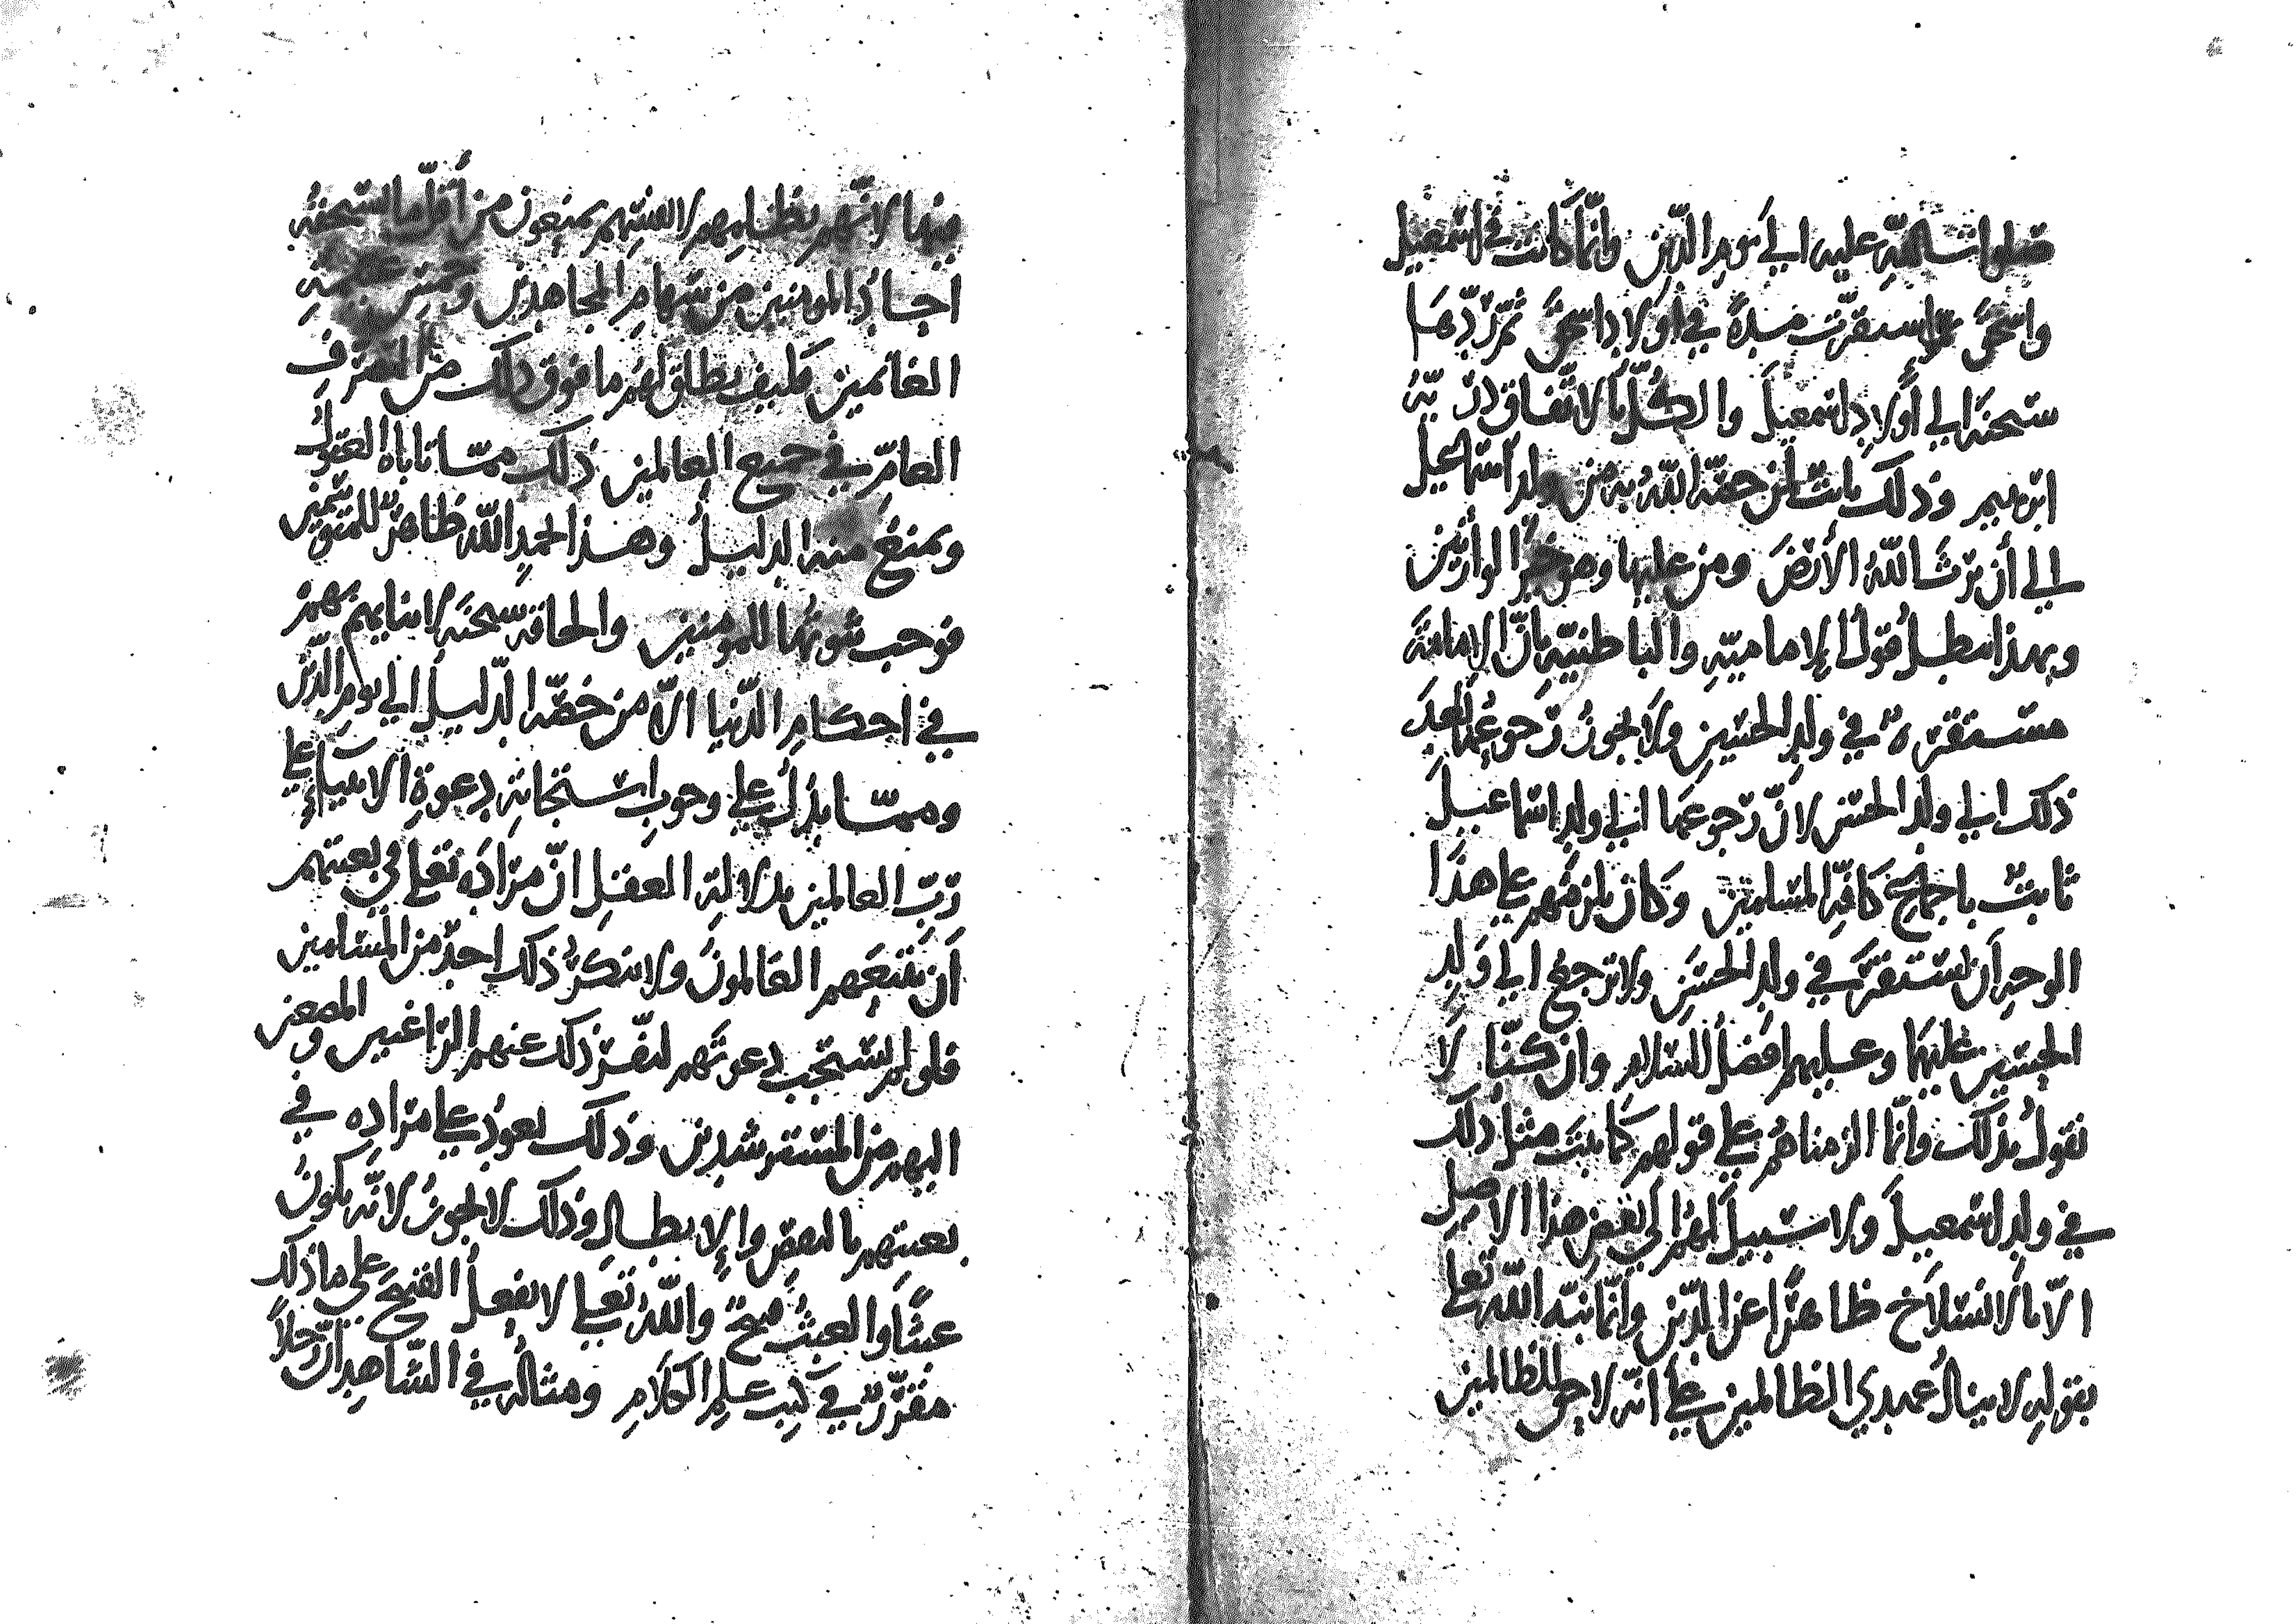 صلوات الله عليه الى يوم الدين وانما كانت في اسمعيل
واسحق ثم استقرت مدة في أولاد اسحق ثم ردها
سبحنه الى أولاد اسمعيل والكل بالاتفاق ذرية
ابرهيم وذلك ثابت لمن خصه الله به من ولد اسماعيل
الى أن يرث الله الأرض ومن عليها وهو خير الوارثين
وبهذا يبطل قول الإمامية والباطنية بأن الإمامة
مستقرة في ولد الحسين ولا يجوز رجوعها بعد
ذلك الى ولد الحسن لان رجوعها الى ولد اسماعيل
ثابت باجماع كافة المسلمين وكان يلزمهم على هذا
الوجه أن تستقر في ولد الحسن ولا ترجع الى ولد
الحسين عليهما وعليهم افضل السلام وان كنا لا
نقول بذلك وانما الزمناهم على قولهم كما بيت مثل ذلك
في ولد اسمعيل ولا سبيل لهم الى نقض هذا الاصل
الا بالانسلاخ ظاهرا عن الدين وانما نبه الله تعالى
بقوله لا ينال عهدي الظالمين على انه لا حق للظالمين
فيها لانهم بظلمهم لانفسهم يمنعون من أقل ما استحقه
احاد المومنين من سهام المجاهدين وخمس غنيمة
الغانمين فكيف يطلق لهم ما فوق ذلك من التصرف
العام في جميع العالمين ذلك مما تاباه العقول
ويمنع منه الدليل وهذا بحمد الله ظاهر للمتوسمين
فوجب ثبوتها للمومنين والحاقه سبحنه لابنايهم بهم
في احكام الدنيا الا من خصه الدليل الى يوم الدين
ومما يدل على وجوب استجابة دعوة الانبياء على
رب العالمين بدلالة العقل ان مراده تعالى في بعثهم
أن يتبعهم العالمون ولا ينكر ذلك احد من المسلمين
فلو لم يستجب دعوتهم لنفر ذلك عنهم الراغبين و المصغين
اليهم من المسترشدين وذلك يعود على مراده في
بعثهم بالنقض والإبطال وذلك لا يجوز لانه يكون
عبثا والعبث قبيح والله تعالى لا يفعل القبيح على ما ذلك
مقرر في كتب علم الكلام ومثاله في الشاهد ان رجلا